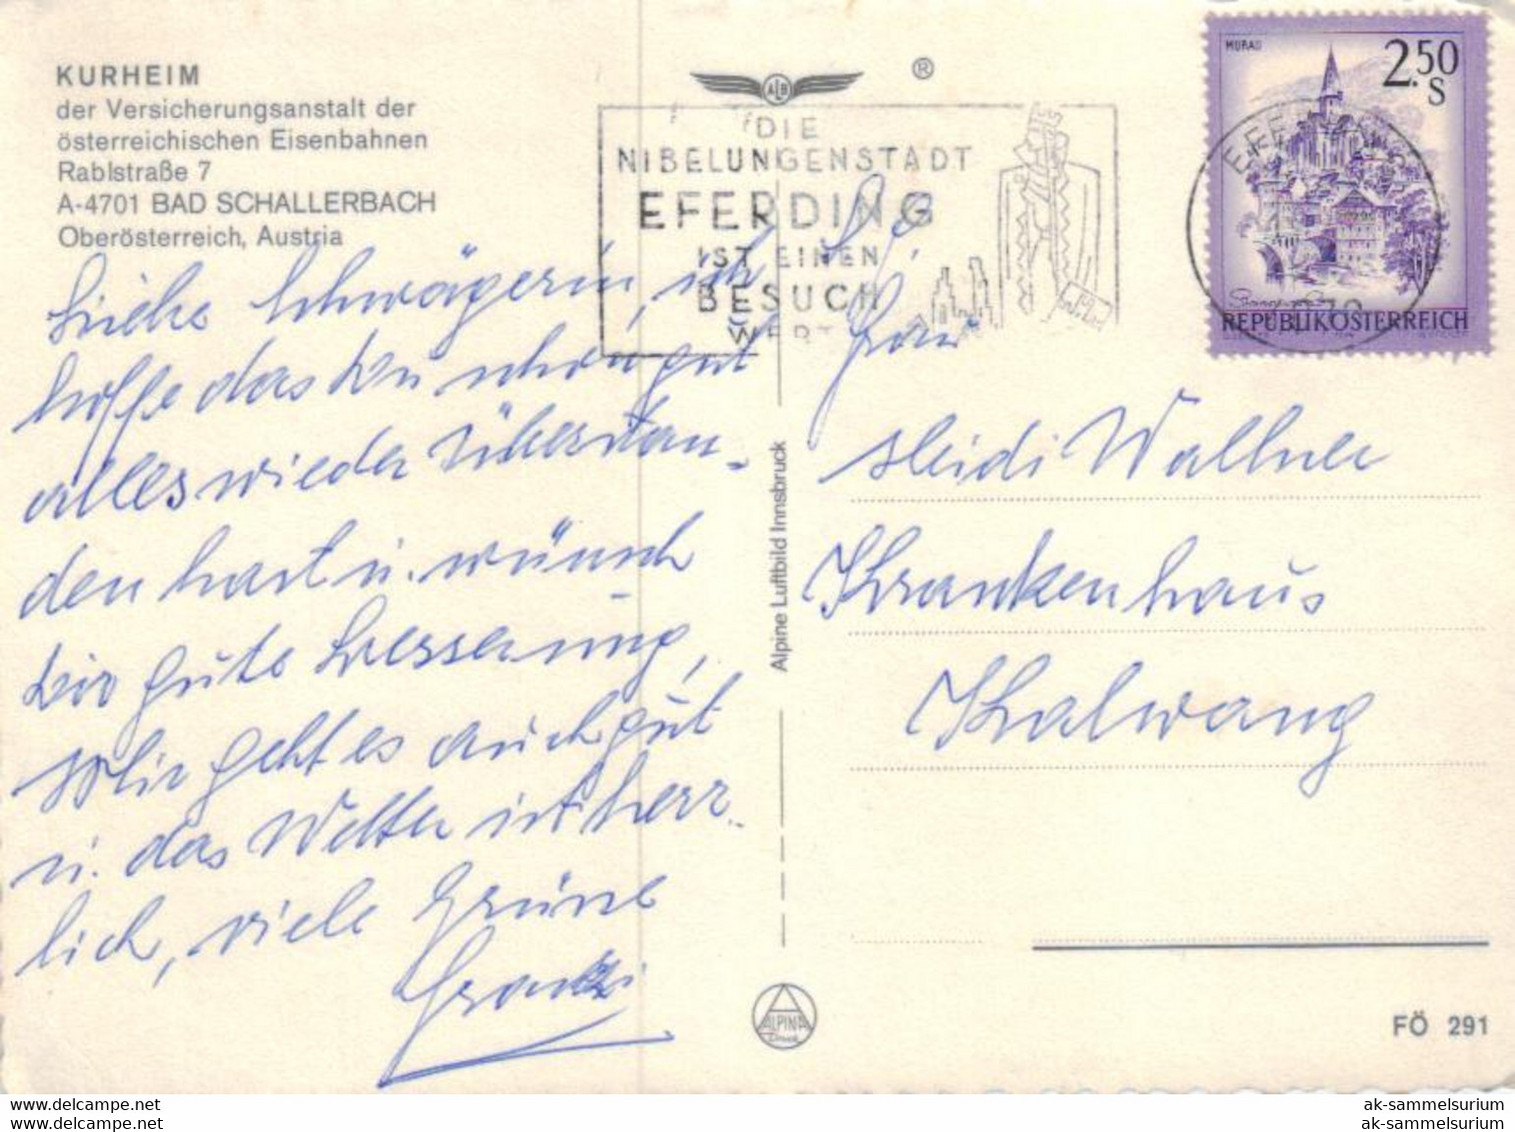 KURHEIM
der Versicherungsanstalt der
österreichischen Eisenbahnen
Rablstraße 7
A-4701 BAD SCHALLERBACH
Oberösterreich, Austria
ALB ®
DIE
NIBELUNGENSTADT
EFERDING
IST EINEN
BESUCH
WERT
MURAU
2.50
S
REPUBLIK ÖSTERREICH
Liebe Schwägerin, ich
hoffe das Du schon gut
alles wieder überstan-
den hast u. wünsch
Dir gute Besserung,
Mir geht es auch gut
u. das Wetter ist herr-
lich, viele Grüße
Frau
Heidi Wallner
Krankenhaus
Kalwang
Alpine Luftbild Innsbruck
ALPINA
Druck
FÖ 291
www.delcampe.net
www.delcampe.net
ak-sammelsurium
ak-sammelsurium